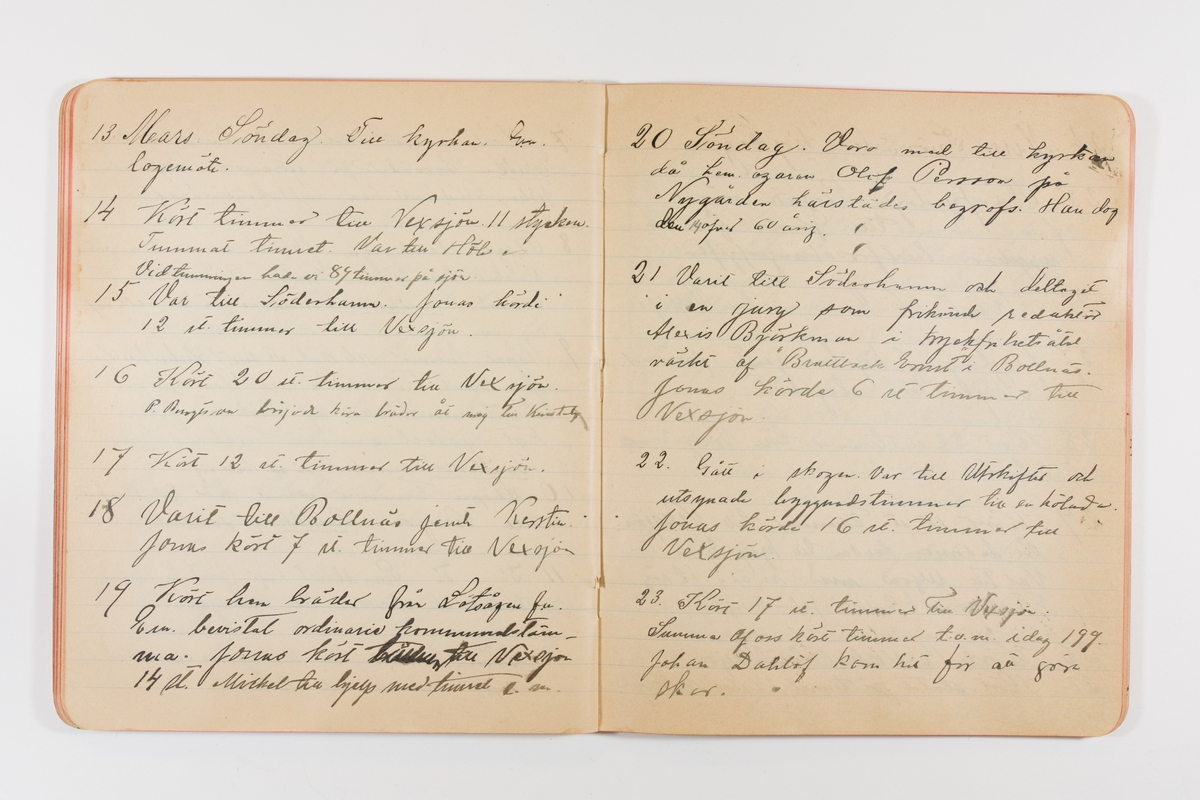 13 Mars. Söndag. Till kyrkan. Em.
logemöte.
14 Kört timmer till Vexsjön. 11 stycken.
Tummat timret. Var till
Vid tumningen hade vi 84 timmer på sjön
15 Var till Söderhamn. Jonas körde
12 st. timmer till Vexsjön.
16 Kört 20 st. timmer till Vexsjön.
P. börjode köra bräder åt mig till
17 Kört 12 st. timmer till Vexsjön.
18 Varit till Bollnäs jemte Kerstin.
Jonas kört 7 st. timmer till Vexsjön
19 Kört hem bräder från Lotsågen fm.
Em. bevistat ordinarie kommunalstäm-
ma. Jonas kört till Vexsjön
14 st. Mickel till hjelp med timret e. m.
20 Söndag. Voro med till kyrkan
då hem. egaren Olof Persson på
Nygården härstädes begrofs. Han dog
den 14 öfver 60 årig.
21 Varit till Söderhamn och deltaget
i en jury som frikände redaktör
Alexis Björkman i tryckfrihetsåtal
väckt af "Brattbacks Ernst" i Bollnäs.
Jonas körde 6 st timmer till
Vexsjön.
22. Gått i skogen. Var till Utskiftet och
utsynade byggnadstimmer till en kölada.
Jonas körde 16 st. timmer till
Vexsjön.
23. Kört 17 st. timmer till Vexsjön.
Summa af oss kört timmer t.o.m. idag 199.
Johan Dahlöf kom hit för att göra
skor.